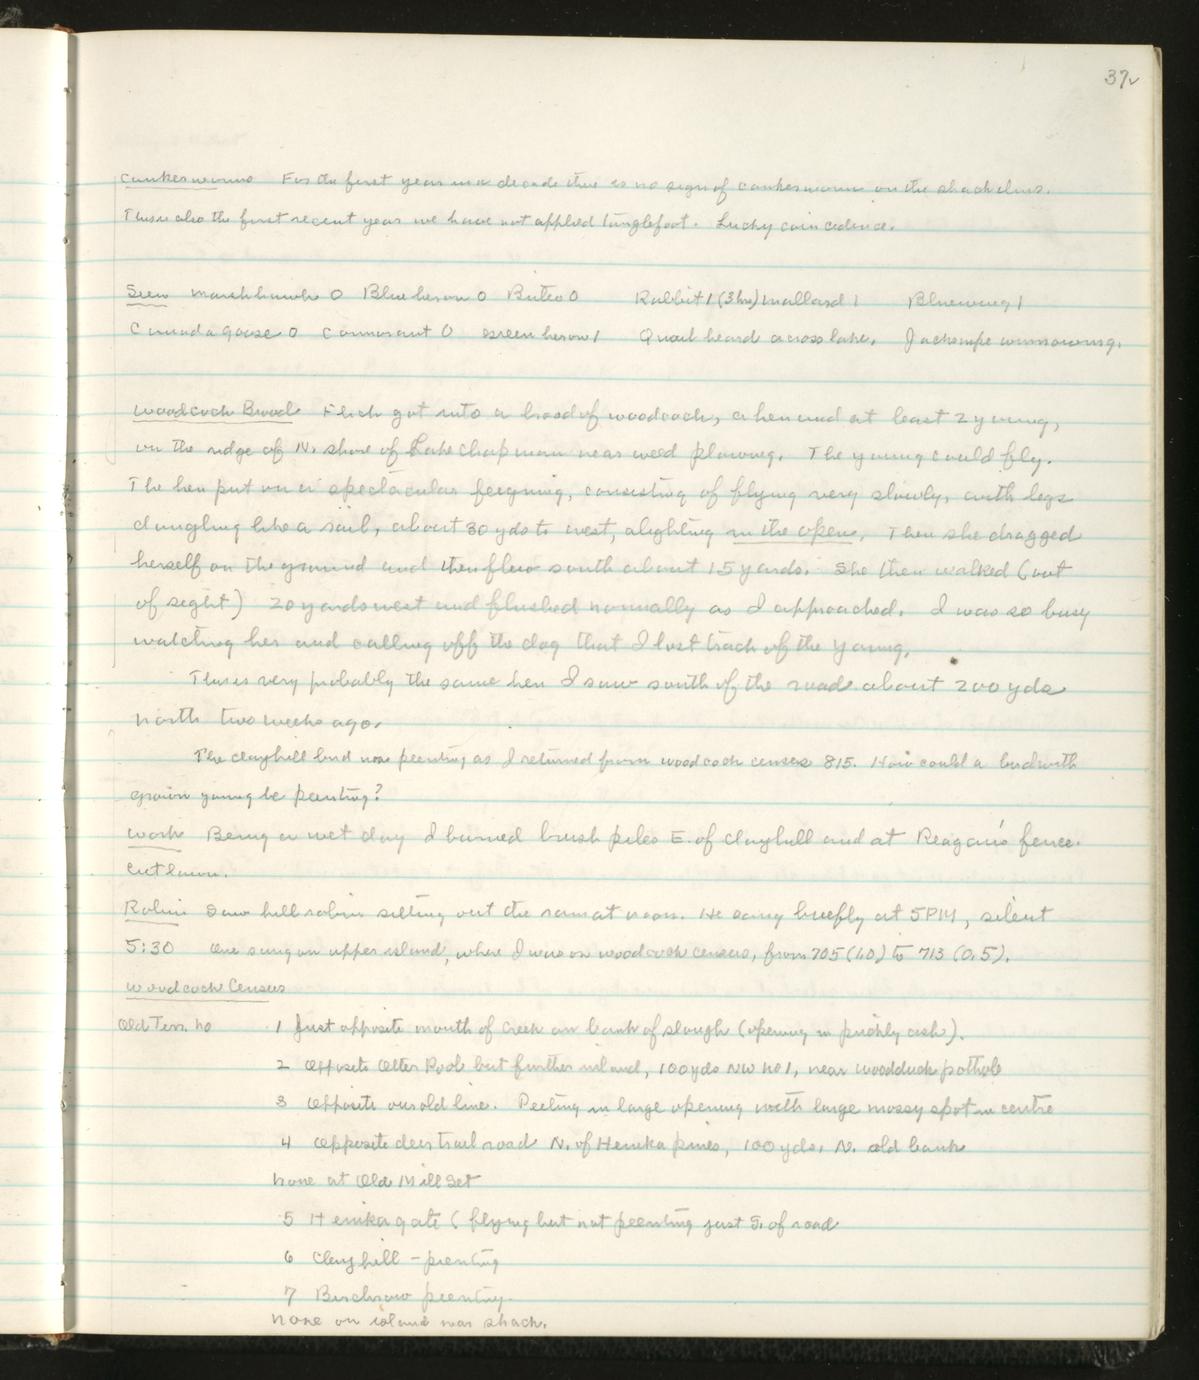 37
Cankerworms For the first year in a decade there is no sign of cankerworm on the shack elms.
This is also the first recent year we have not applied tanglefoot. Lucky coincidence.
Seen Marsh hawk 0 Blue heron 0 Buteo 0 Rabbit 1 (3 hrs) Mallard 1 Bluewing 1
Canada goose 0 Cormorant 0 Green heron 1 Quail heard across lake. Jacksnipe winnowing.
Woodcock Brood Flick got into a brood of woodcock, a hen and at least 2 young,
on the ridge of N. shore of Lake Chapman near weed plowing. The young could fly.
The hen put on a spectacular feigning, consisting of flying very slowly, with legs
dangling like a rail, about 30 yds to west, alighting in the open. Then she dragged
herself on the ground and then flew south about 15 yards. She then walked (out
of sight) 20 yards west and flushed normally as I approached. I was so busy
watching her and calling off the dog that I lost track of the young.
This is very probably the same hen I saw south of the road about 200 yds
north two weeks ago.
The clayhill bird was peenting as I returned from woodcock census 815. How could a bird with
grown young be peenting?
Work Being a wet day I burned brush piles E. of Clayhill and at Reagan's fence.
Cut lawn.
Robin Saw hill robin sitting out the rain at noon. He sang briefly at 5 PM, silent
5:30 One sang on upper island, where I was on woodcock census, from 705 (1.0) to 713 (0.5).
Woodcock Census
Old Terr. no 1 Just opposite mouth of Creek on bank of slough (opening in prickly ash).
2 Opposite Otter Pool but further inland, 100 yds NW no 1, near woodduck pothole
3 Opposite our old line. Peeting in large opening with large mossy spot in centre
4 Opposite deer trail road N. of Henika pines, 100 yds. N. old bank
None at Old Mill Set
5 Henika gate (flying but not peenting just S. of road
6 Clayhill - peenting
7 Birchrow peenting.
None on island near shack.